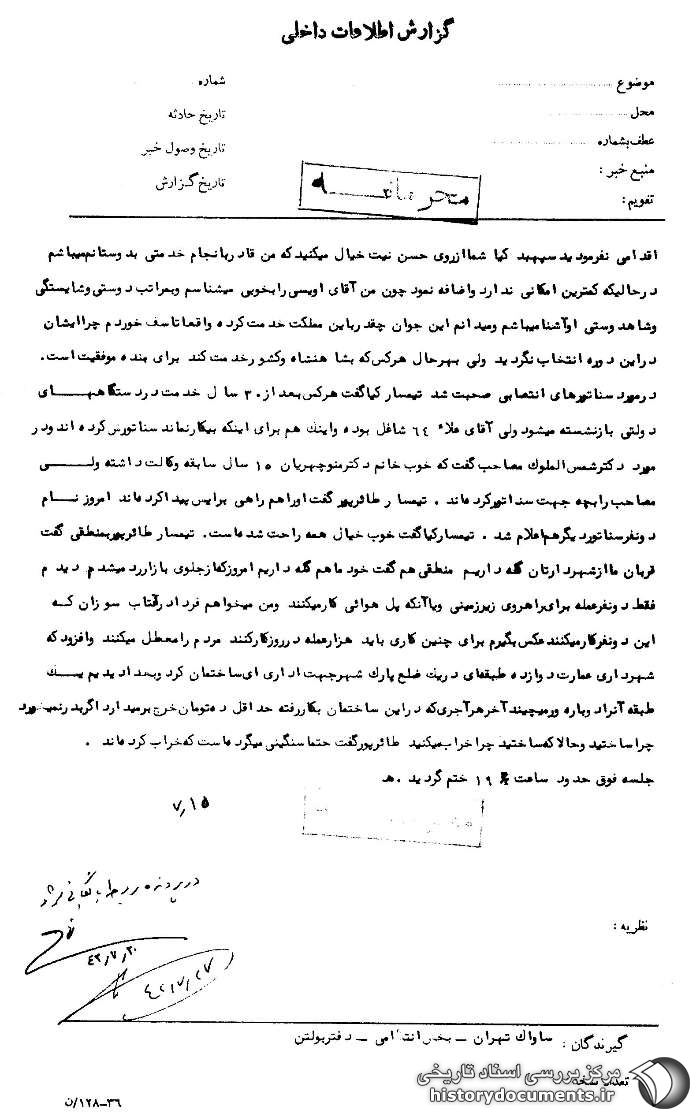 گزارش اطلاعات داخلی
موضوع
شماره
محل
تاریخ حادثه
عطف بشماره
تاریخ وصول خبر
منبع خبر :
تاریخ گزارش
تقویم :
محرمانه
اقدامی نفرمودید سپهبد کیا شما از روی حسن نیت خیال میکنید که من قادر بانجام خدمتی بدوستانم میباشم
در حالیکه کمترین امکانی ندارد واضافه نمود چون من آقای اویسی را بخوبی میشناسم وبمراتب دوستی وشایستگی
وشاهدوستی او آشنا میباشم ومیدانم این جوان چقدر باین مملکت خدمت کرده واقعا تاسف خوردم چرا ایشان
در این دوره انتخاب نگردید ولی بهر حال هرکس که بشاهنشاه وکشور خدمت کند برای بنده موفقیت است .
در مورد سناتورهای انتصابی صحبت شد تیمسار کیا گفت هرکس بعد از ۳۰ سال خدمت در دستگاههای
دولتی بازنشسته میشود ولی آقای علاء ۶۴ شاغل بوده واینك هم برای اینکه بیکار نماند سناتورش کرده اند ودر
مورد دکتر شمس الملوك مصاحب گفت که خوب خانم دکتر منوچهریان ۱۵ سال سابقه وکالت داشته ولی
مصاحب را بچه جهت سناتور کرده اند . تیمسار طائرپور گفت او را هم راهی برایش پیدا کرده اند امروز نام
دو نفر سناتور دیگر هم اعلام شد . تیمسار کیا گفت خوب خیال همه راحت شده است . تیمسار طائرپور بمنطقی گفت
قربان ما از شهردارتان گله داریم منطقی هم گفت خود ما هم گله داریم امروز که از جلوی بازار رد میشدم دیدم
فقط دو نفر عمله برای راهروی زیرزمینی ویا آنکه پل هوائی کار میکنند ومن میخواهم فردا در آفتاب سوزان که
این دو نفر کار میکنند عکس بگیرم برای چنین کاری باید هزار عمله در روز کار کنند مردم را معطل میکنند وافزود که
شهرداری عمارت دوازده طبقه ای در یك ضلع پارك شهر جهت اداری ای ساختمان کرد وبعدا دیدیم یك
طبقه آنرا دوباره ورمیچیند آخر هر آجری که در این ساختمان بکار رفته حداقل ده تومان خرج برمیدارد اگر بدرد نمیخورد
چرا ساختید وحالا که ساختید چرا خراب میکنید طائرپور گفت حتما سنگینی میکرده است که خراب کرده اند .
جلسه فوق حدود ساعت ۱۹ ختم گردید . ه
۷/۱۵
۴۲/۷/۲۰
۴۲/۷/۲۷
نظریه :
گیرندگان : ساواك تهران – بخش انتظامی – دفتر بولتن
تعداد نسخه
۳۶–۱۲۸/ن
مرکز بررسی اسناد تاریخی
historydocuments.ir